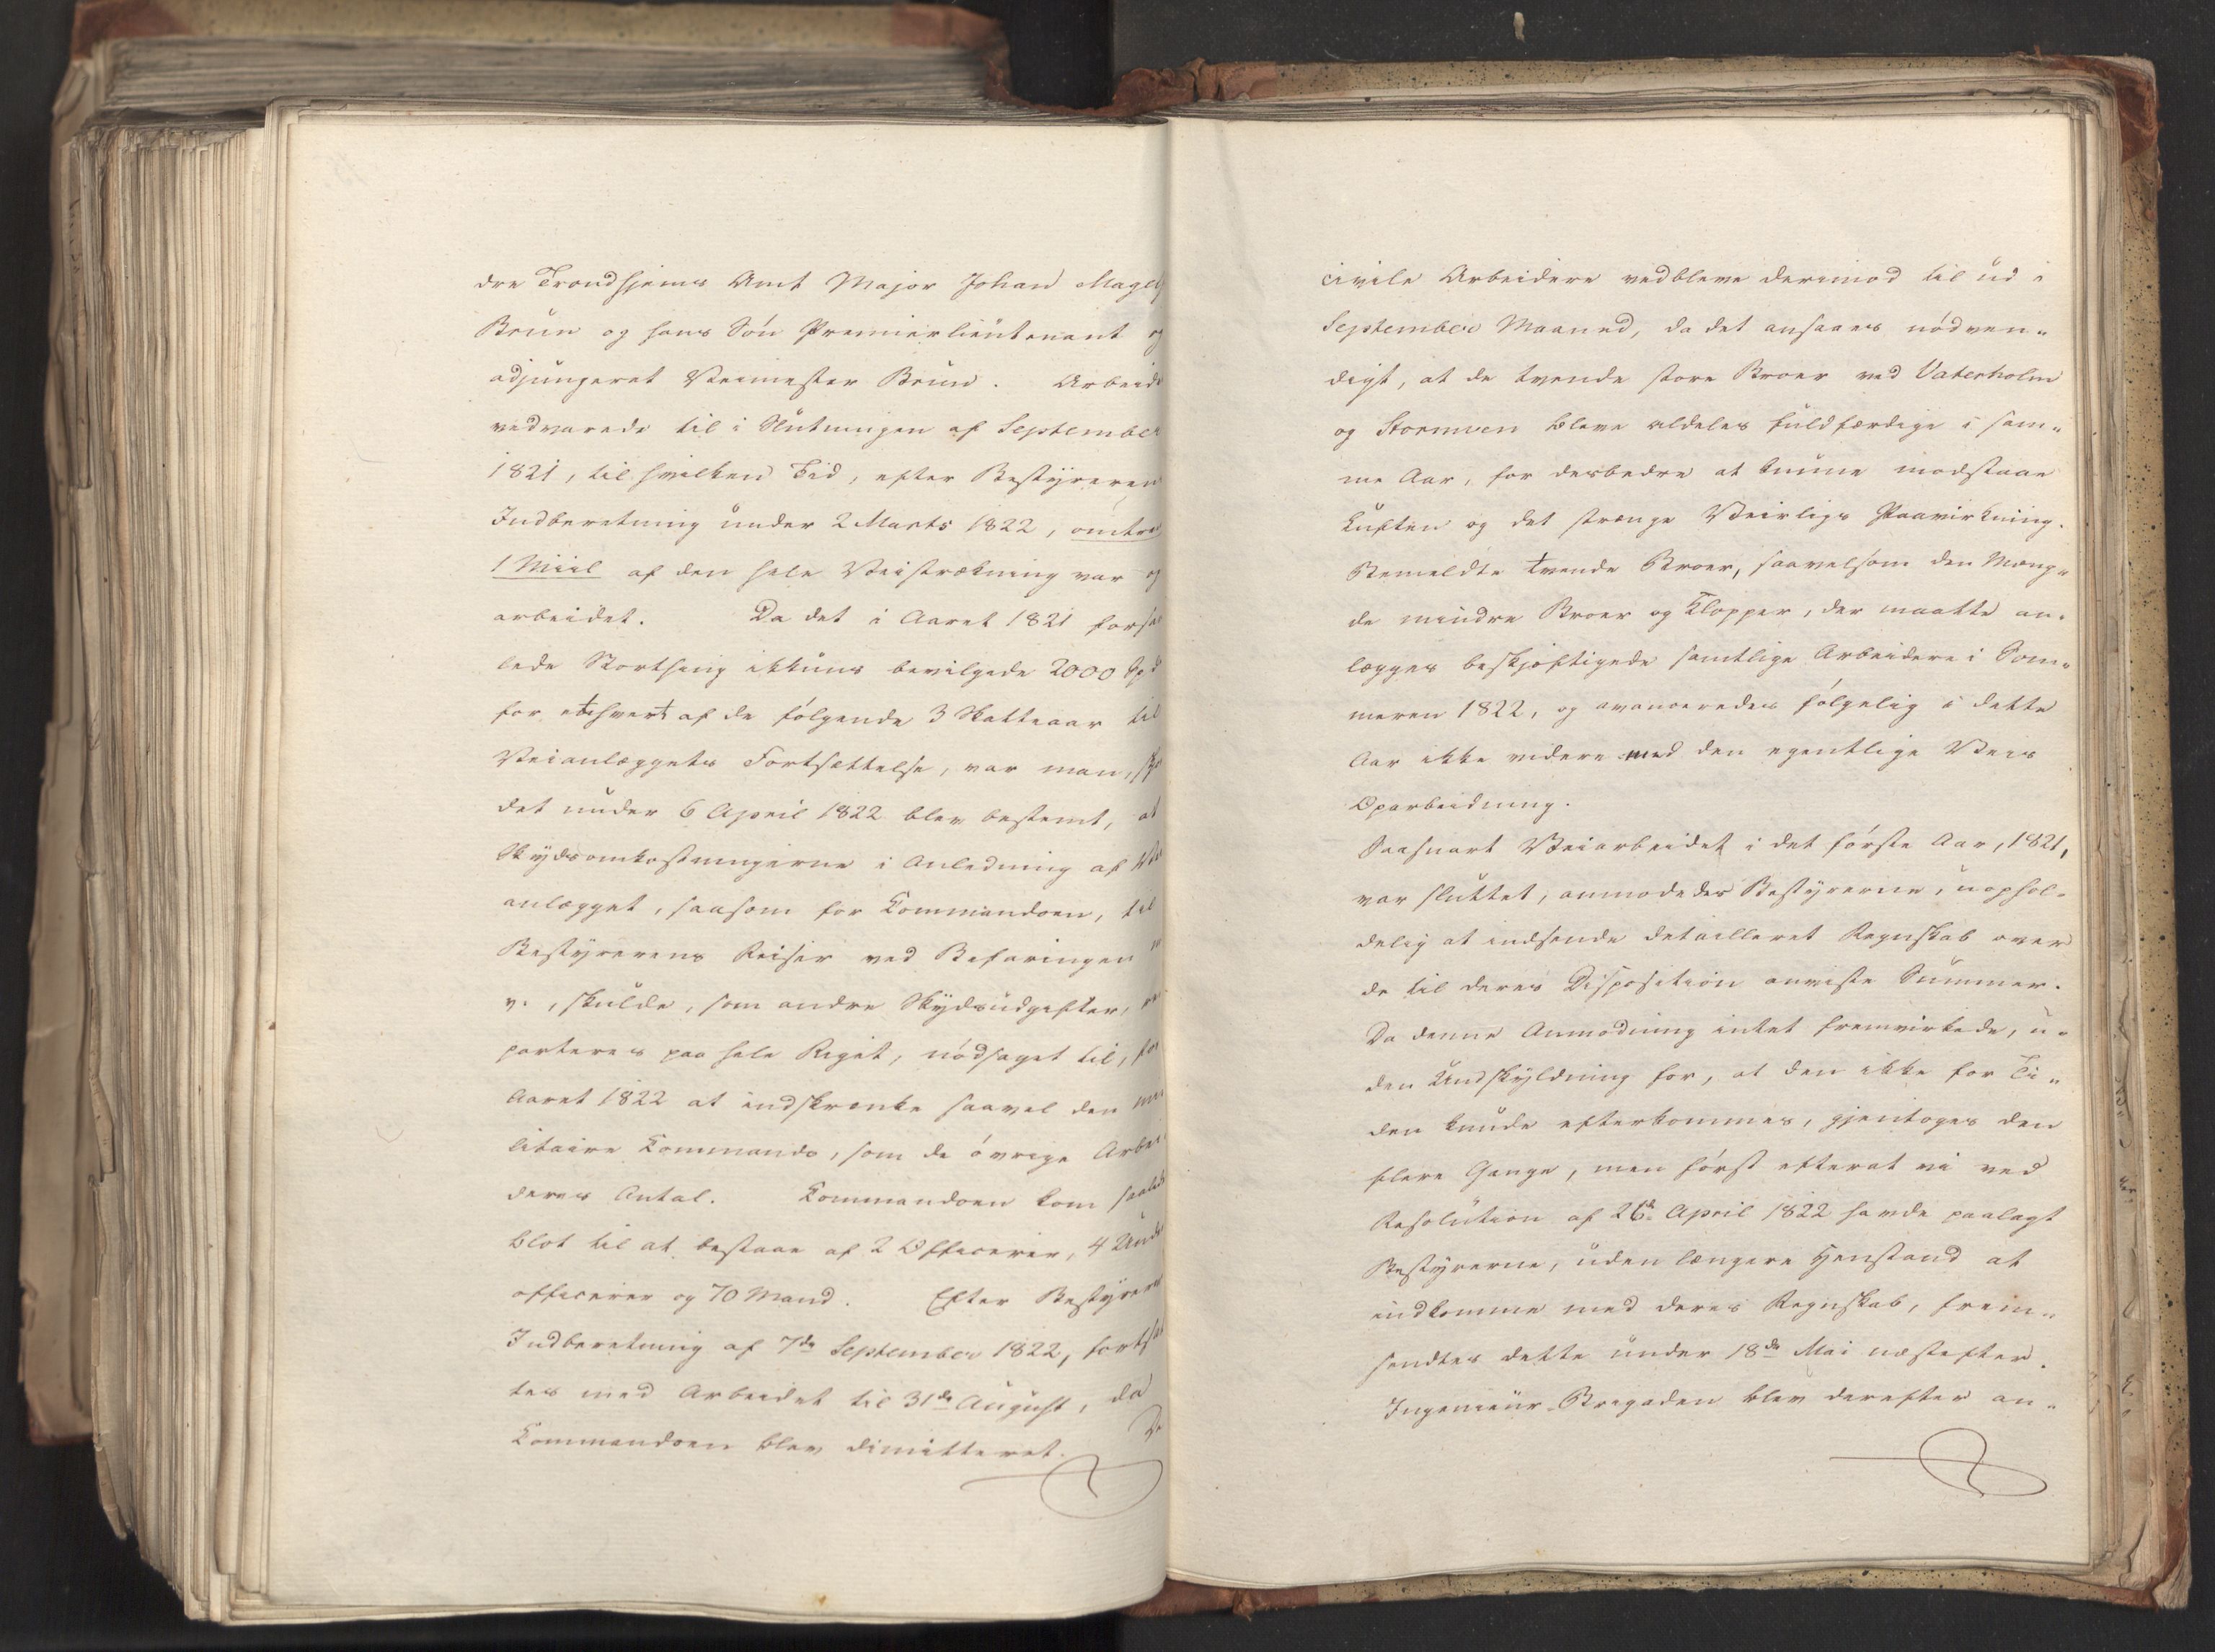 dre Trondhjems Amt Major Johan Magel
Brun og hans Søn Premierlieutenant og
adjungeret Veimester Brun. Arbeide
vedvarede til i Slutningen af September
1821, til hvilken Tid, efter Bestyreren
Indberetning under 2 Marts 1822, omtre
1 Miil af den hele Veistrækning var op
arbeidet. Da det i Aaret 1821 forsa
lede Storthing ikkuns bevilgede 2000 Spd
for ethvert af de følgende 3 Skatteaar til
Veianlæggets Fortsættelse, var man,
det under 6 April 1822 blev bestemt, at
Skydsomkostningerne i Anledning af Vei
anlægget, saasom for Kommandoen, til
Bestyrerens Reiser ved Befaringen m
v., skulde, som andre Skydsudgifter, re
parteres paa hele Riget, nødsaget til, for
Aaret 1822 at indskrænke saavel den mi
litaire Kommando, som de øvrige Arbei
deres Antal. Kommandoen kom saaled
blot til at bestaae af 2 Officerer, 4 Unde
officerer og 70 Mand. Efter Bestyrere
Indberetning af 7de September 1822, fortsat
tes med Arbeidet til 31de August, da
Kommandoen blev dimitteret. De
civile Arbeidere vedbleve derimod til ud i
September Maaned, da det ansaaes nødven„
digt, at de tvende store Broer ved Vaterholm
og Stormoen bleve aldeles fuldfærdige i sam„
me Aar, for desbedre at kunne modstaae
Luften og det strænge Veirligs Paavirkning.
Bemeldte tvende Broer, saavelsom den Mæng„
de mindre Broer og Klopper, der maatte an„
lægges beskjæftigede samtlige Arbeidere i Som„
meren 1822, og avanceredes følgelig i dette
Aar ikke videre med den egentlige Veis
Oparbeidning.
Saasnart Veiarbeidet i det første Aar, 1821,
var sluttet, anmodedes Bestyrerne, uophol„
delig at indsende detailleret Regnskab over
de til deres Disposition anviste Summer.
Da denne Anmodning intet fremvirkede, u„
den Undskyldning for, at den ikke for Ti„
den kunde efterkommes, gjentoges den
flere Gange, men først efterat vi ved
Resolution af 26de April 1822 havde paalagt
Bestyrerne, uden længere Henstand at
indkomme med deres Regnskab, frem„
sendtes dette under 18de Mai næstefter.
Ingenieur-Brigaden blev derefter an„